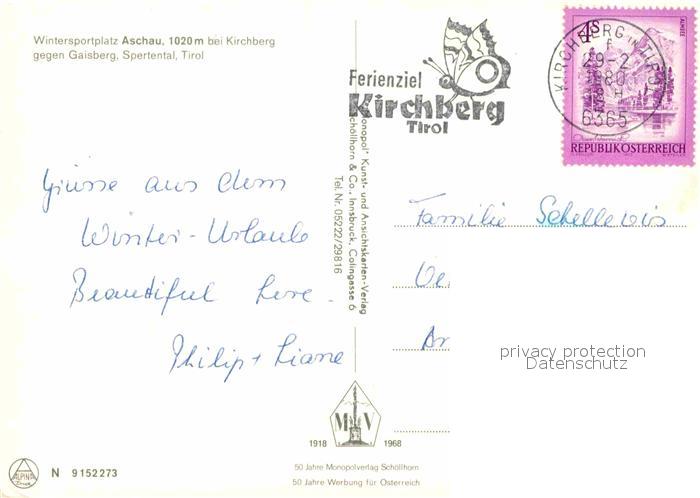 Wintersportplatz Aschau, 1020 m bei Kirchberg
gegen Gaisberg, Spertental, Tirol
Ferienziel
Kirchberg
Tirol
KIRCHBERG IN TIROL
f
29-2
80
6365
4S
ALMSEE
REPUBLIK ÖSTERREICH
Grüsse aus dem
Winter-Urlaub
Beautiful here.
Philip + Liane
„Monopol“ Kunst- und Ansichtskarten-Verlag
Schöllhorn & Co., Innsbruck, Colingasse 6
Tel. Nr. 05222/29816
Familie Schellevis
De
Ar
privacy protection
Datenschutz
M V
1918 1968
50 Jahre Monopolverlag Schöllhorn
50 Jahre Werbung für Österreich
ALPINA
Druck
N 9152273